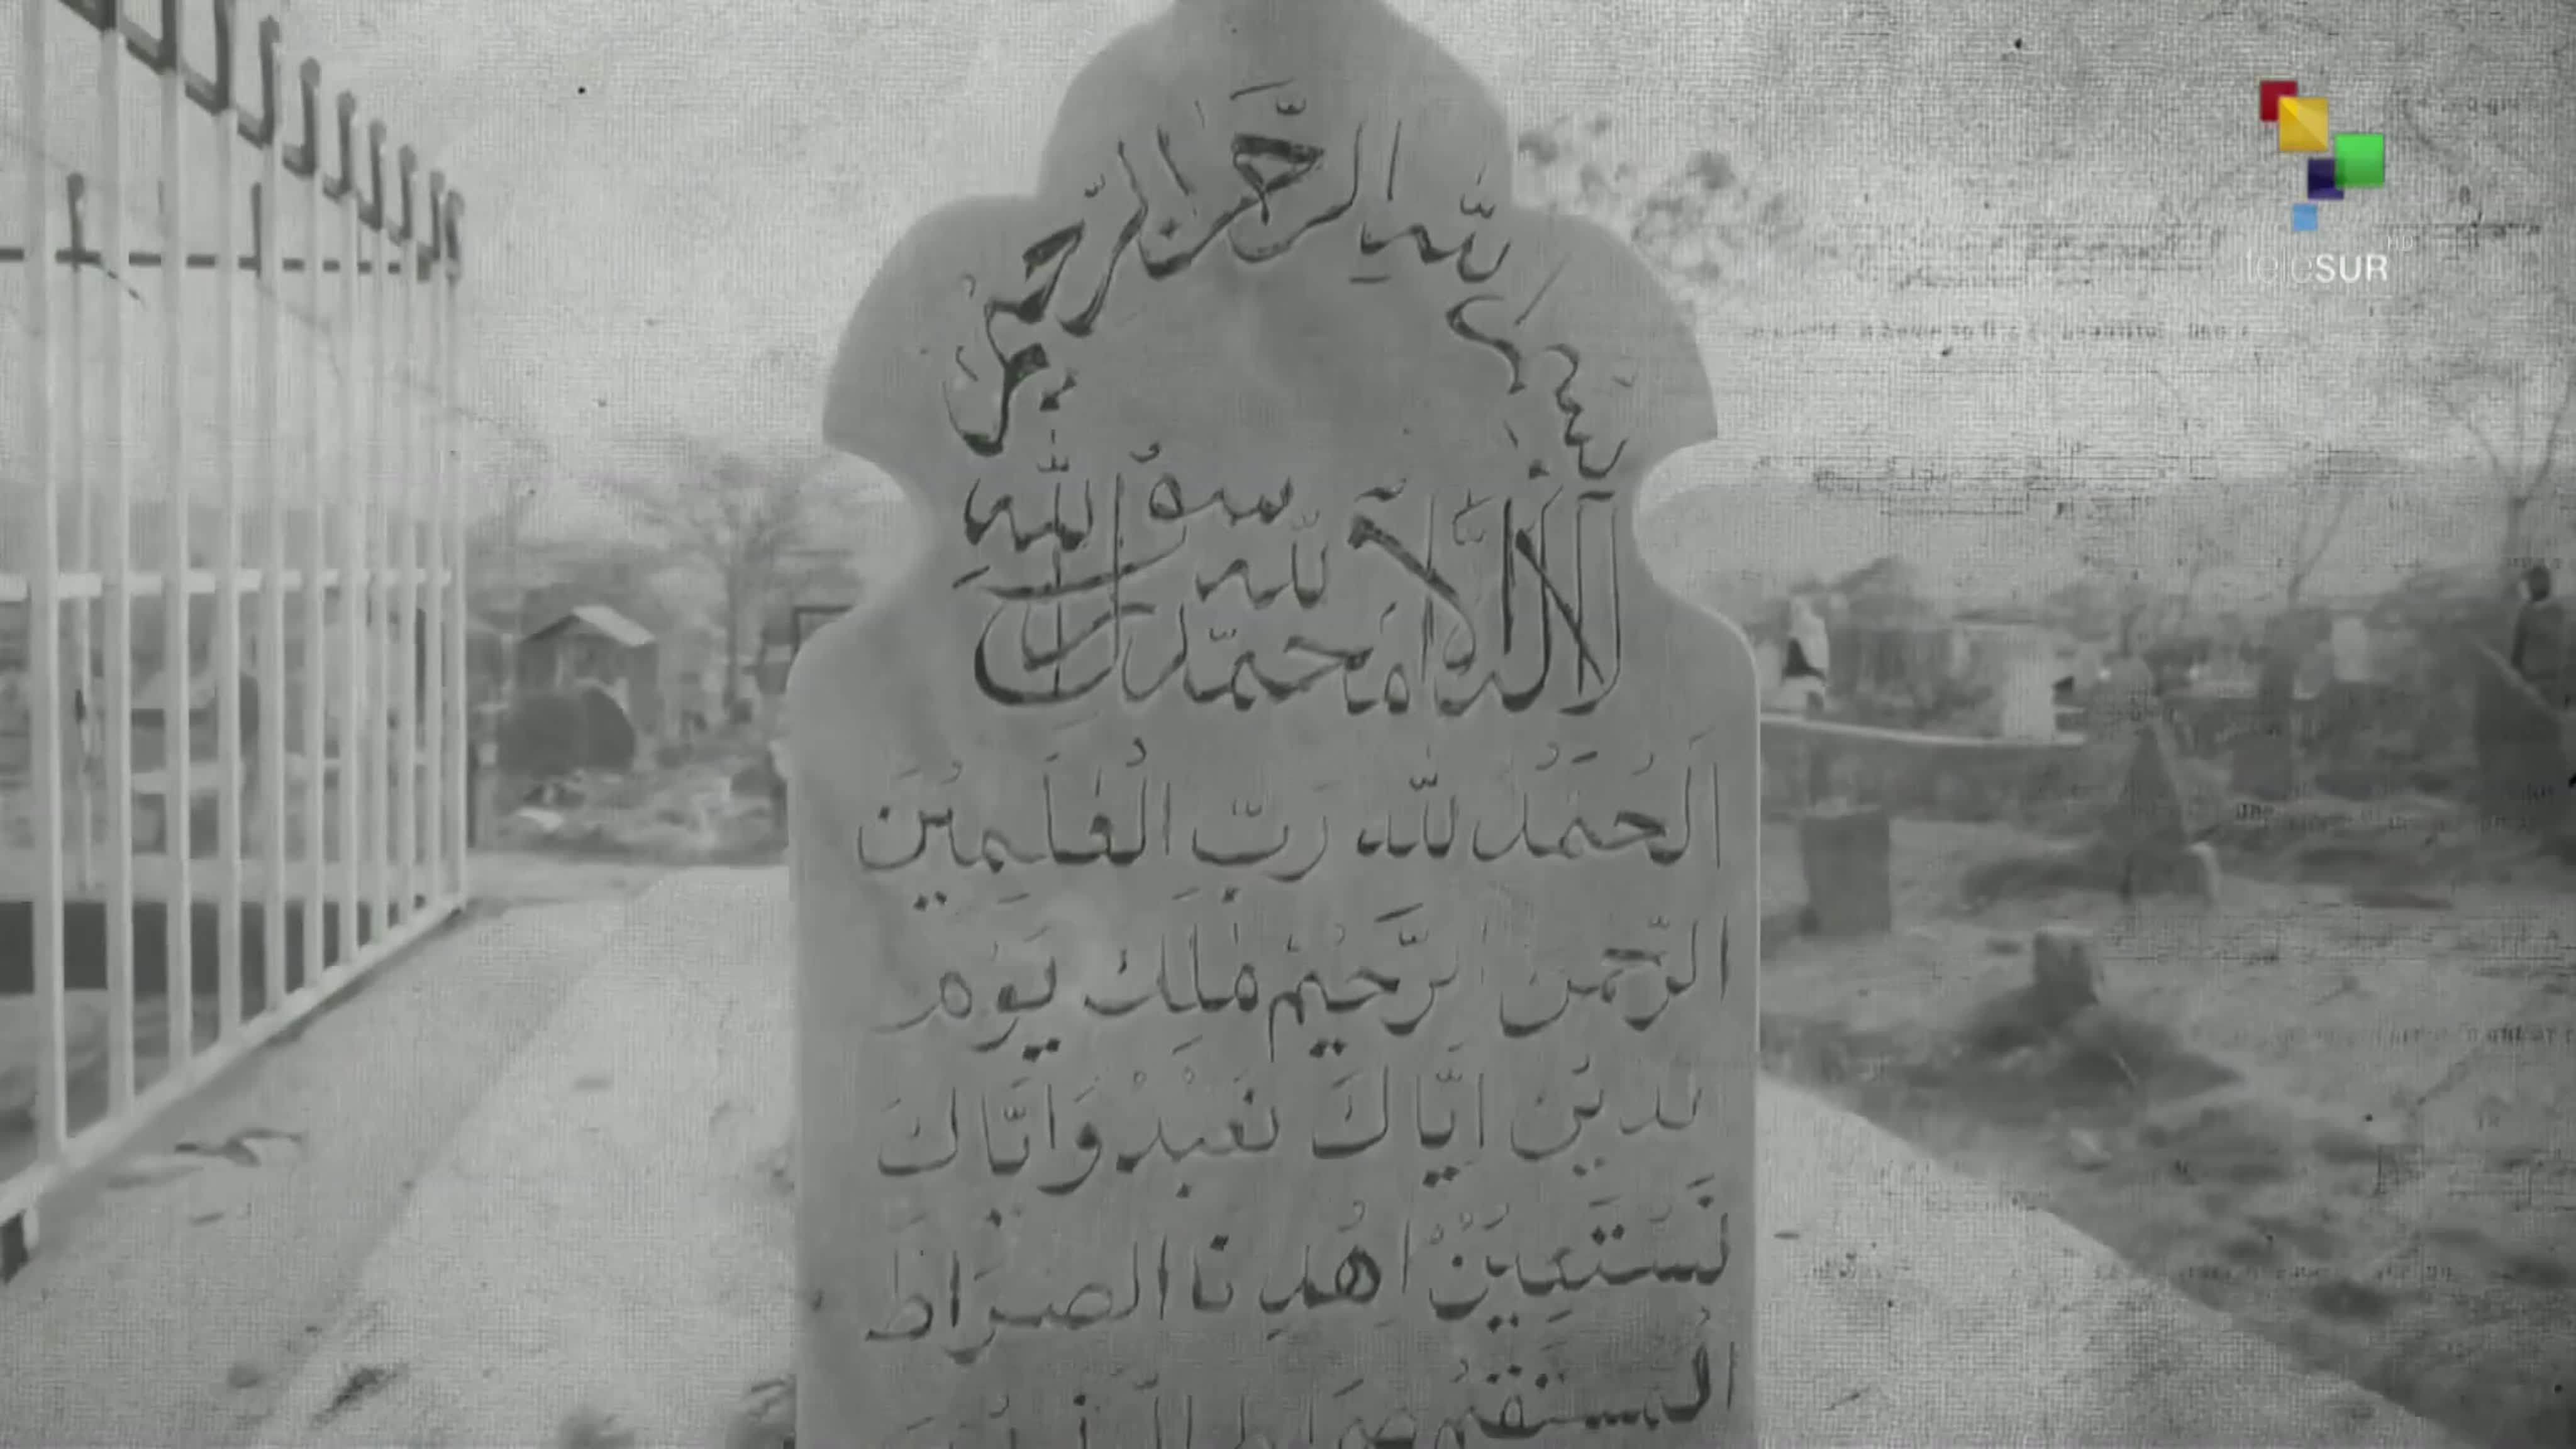 بِسْمِ اللّٰهِ الرَّحْمٰنِ الرَّحِيْمِ
لَا اِلٰهَ اِلَّا اللّٰه مُحَمَّد رَسُوْلُ اللّٰهِ
اَلْحَمْدُ لِلّٰهِ رَبِّ الْعٰلَمِيْنَ
الرَّحْمن الرَّحِيْم مٰلِكِ يَوْمِ
الدِّيْن اِيَّاكَ نَعْبُدُ وَاِيَّاكَ
نَسْتَعِيْنُ اِهْدِنَا الصِّرَاطَ
الْمستقيم صِرَاط
teleSUR HD